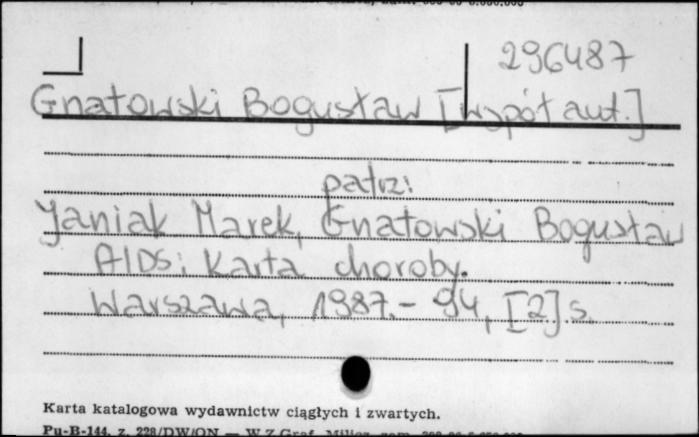 296487
Gnatowski Bogusław [współaut.]
patrz:
Janiak Marek, Gnatowski Bogusław
AIDS: karta choroby.
Warszawa, 1987. - 94, [2] s.
Karta katalogowa wydawnictw ciągłych i zwartych.
Pu-B-144, z. 228/DW/ON — W.Z.Graf.